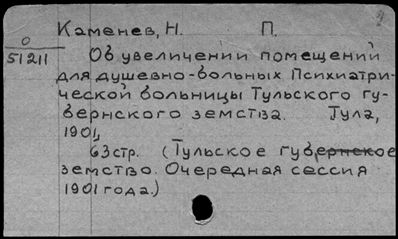 Каменев, Н. П.
0
51211
Об увеличении помещений
для душевно-больных Психиатри-
ческой больницы Тульского гу-
бернского земства. Тула,
1901,
63 стр. (Тульское губернское
земство. Очередная сессия
1901 года.)